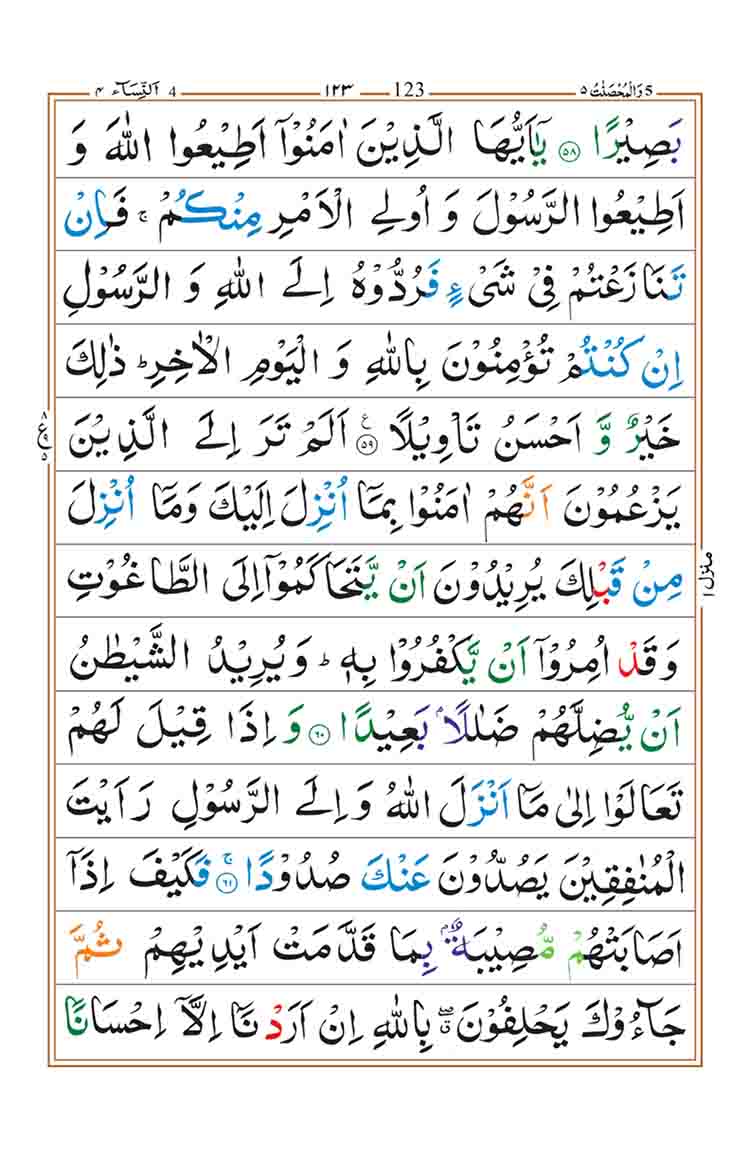 ٤ اَلنِّسَآء 4 ١٢٣ 123 5 وَالْمُحْصَنٰتُ ٥
بَصِيْرًا ۝٥٨ يٰۤاَيُّهَا الَّذِيْنَ اٰمَنُوْۤا اَطِيْعُوا اللّٰهَ وَ
اَطِيْعُوا الرَّسُوْلَ وَ اُولِي الْاَمْرِ مِنْكُمْ ۚ فَاِنْ
تَنَازَعْتُمْ فِيْ شَيْءٍ فَرُدُّوْهُ اِلَى اللّٰهِ وَ الرَّسُوْلِ
اِنْ كُنْتُمْ تُؤْمِنُوْنَ بِاللّٰهِ وَ الْيَوْمِ الْاٰخِرِ ؕ ذٰلِكَ
خَيْرٌ وَّ اَحْسَنُ تَاْوِيْلًا ۝٥٩ اَلَمْ تَرَ اِلَى الَّذِيْنَ
ع ٨ ٩ ٥
يَزْعُمُوْنَ اَنَّهُمْ اٰمَنُوْا بِمَاۤ اُنْزِلَ اِلَيْكَ وَمَاۤ اُنْزِلَ
مِنْ قَبْلِكَ يُرِيْدُوْنَ اَنْ يَّتَحَاكَمُوْۤا اِلَى الطَّاغُوْتِ
منزل ١
وَ قَدْ اُمِرُوْۤا اَنْ يَّكْفُرُوْا بِهٖ ؕ وَيُرِيْدُ الشَّيْطٰنُ
اَنْ يُّضِلَّهُمْ ضَلٰلًاۢ بَعِيْدًا ۝٦٠ وَ اِذَا قِيْلَ لَهُمْ
تَعَالَوْا اِلٰى مَاۤ اَنْزَلَ اللّٰهُ وَ اِلَى الرَّسُوْلِ رَاَيْتَ
الْمُنٰفِقِيْنَ يَصُدُّوْنَ عَنْكَ صُدُوْدًا ۝٦١ۚ فَكَيْفَ اِذَاۤ
اَصَابَتْهُمْ مُّصِيْبَةٌۢ بِمَا قَدَّمَتْ اَيْدِيْهِمْ ثُمَّ
جَآءُوْكَ يَحْلِفُوْنَ ۖۗ بِاللّٰهِ اِنْ اَرَدْنَاۤ اِلَّاۤ اِحْسَانًا